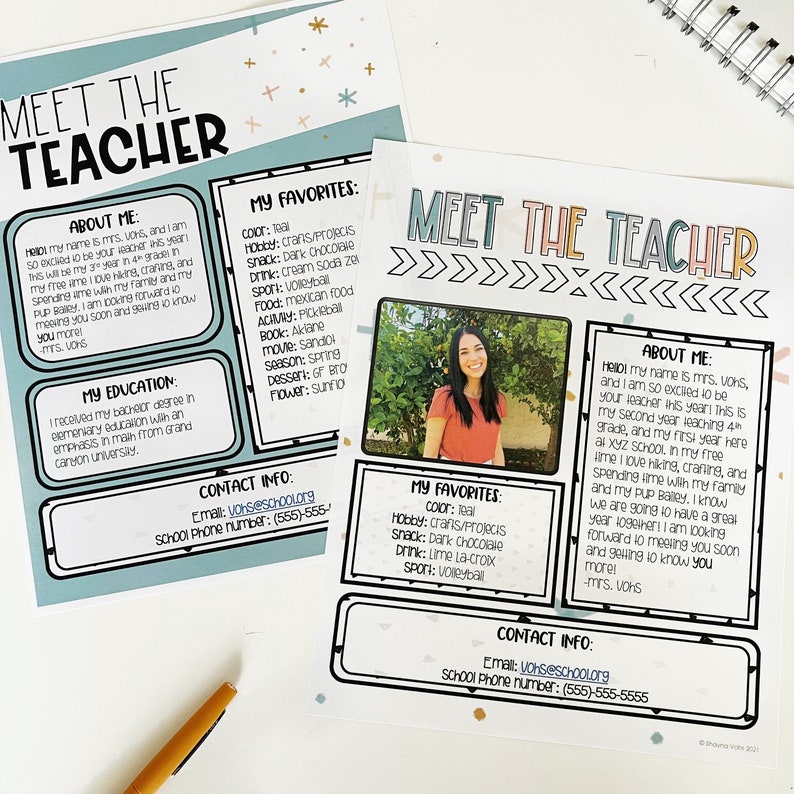 MEET THE
TEACHER
ABOUT ME:
Hello! my name is mrs. Vohs, and I am
so excited to be your teacher this year!
This will be my 3rd year in 4th grade! In
my free time I love hiking, crafting, and
spending time with my family and my
pup Bailey. I am looking forward to
meeting you soon and getting to know
you more!
-mrs. Vohs
MY EDUCATION:
I received my bachelor degree in
elementary education with an
emphasis in math from Grand
Canyon University.
MY FAVORITES:
Color: Teal
Hobby: Crafts/Projects
Snack: Dark Chocolate
Drink: Cream Soda
Sport: Volleyball
Food: mexican food
Activity: Pickleball
Book: Akiane
movie: Sandlot
Season: Spring
Dessert: GF
Flower:
CONTACT INFO:
Email: Vohs@school.org
School Phone number: (555)-555-
MEET THE TEACHER
ABOUT ME:
Hello! my name is mrs. Vohs,
and I am so excited to be
your teacher this year! This is
my second year teaching 4th
grade, and my first year here
at XYZ School. In my free
time I love hiking, crafting, and
spending time with my family
and my pup Bailey. I know
we are going to have a great
year together! I am looking
forward to meeting you soon
and getting to know you
more!
-mrs. Vohs
MY FAVORITES:
Color: Teal
Hobby: Crafts/Projects
Snack: Dark Chocolate
Drink: Lime La-Croix
Sport: Volleyball
CONTACT INFO:
Email: Vohs@school.org
School Phone number: (555)-555-5555
© Shayna Vohs 2021